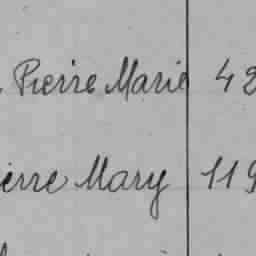 Pierre Marie 42
ierre Mary 119